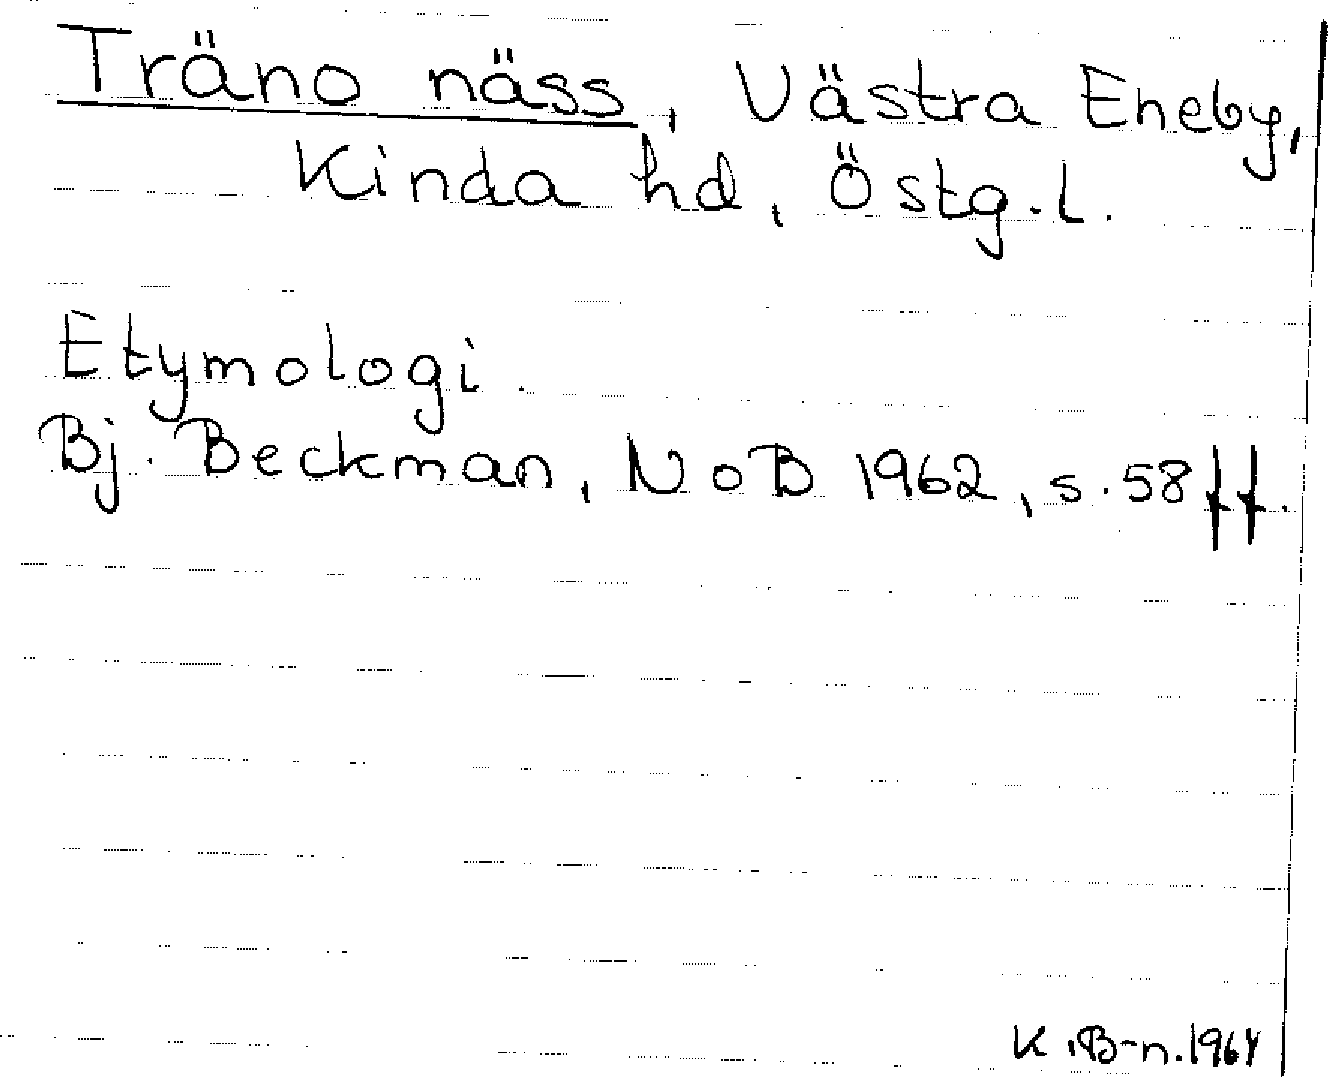 Träno näss, Västra Eneby,
Kinda hd, Östg.l.
Etymologi.
Bj. Beckman, NoB 1962, s. 58 ff.
K. B-n. 1964